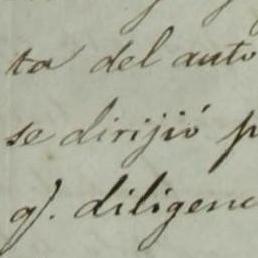 ta del auto
se dirijió p
q). diligenc